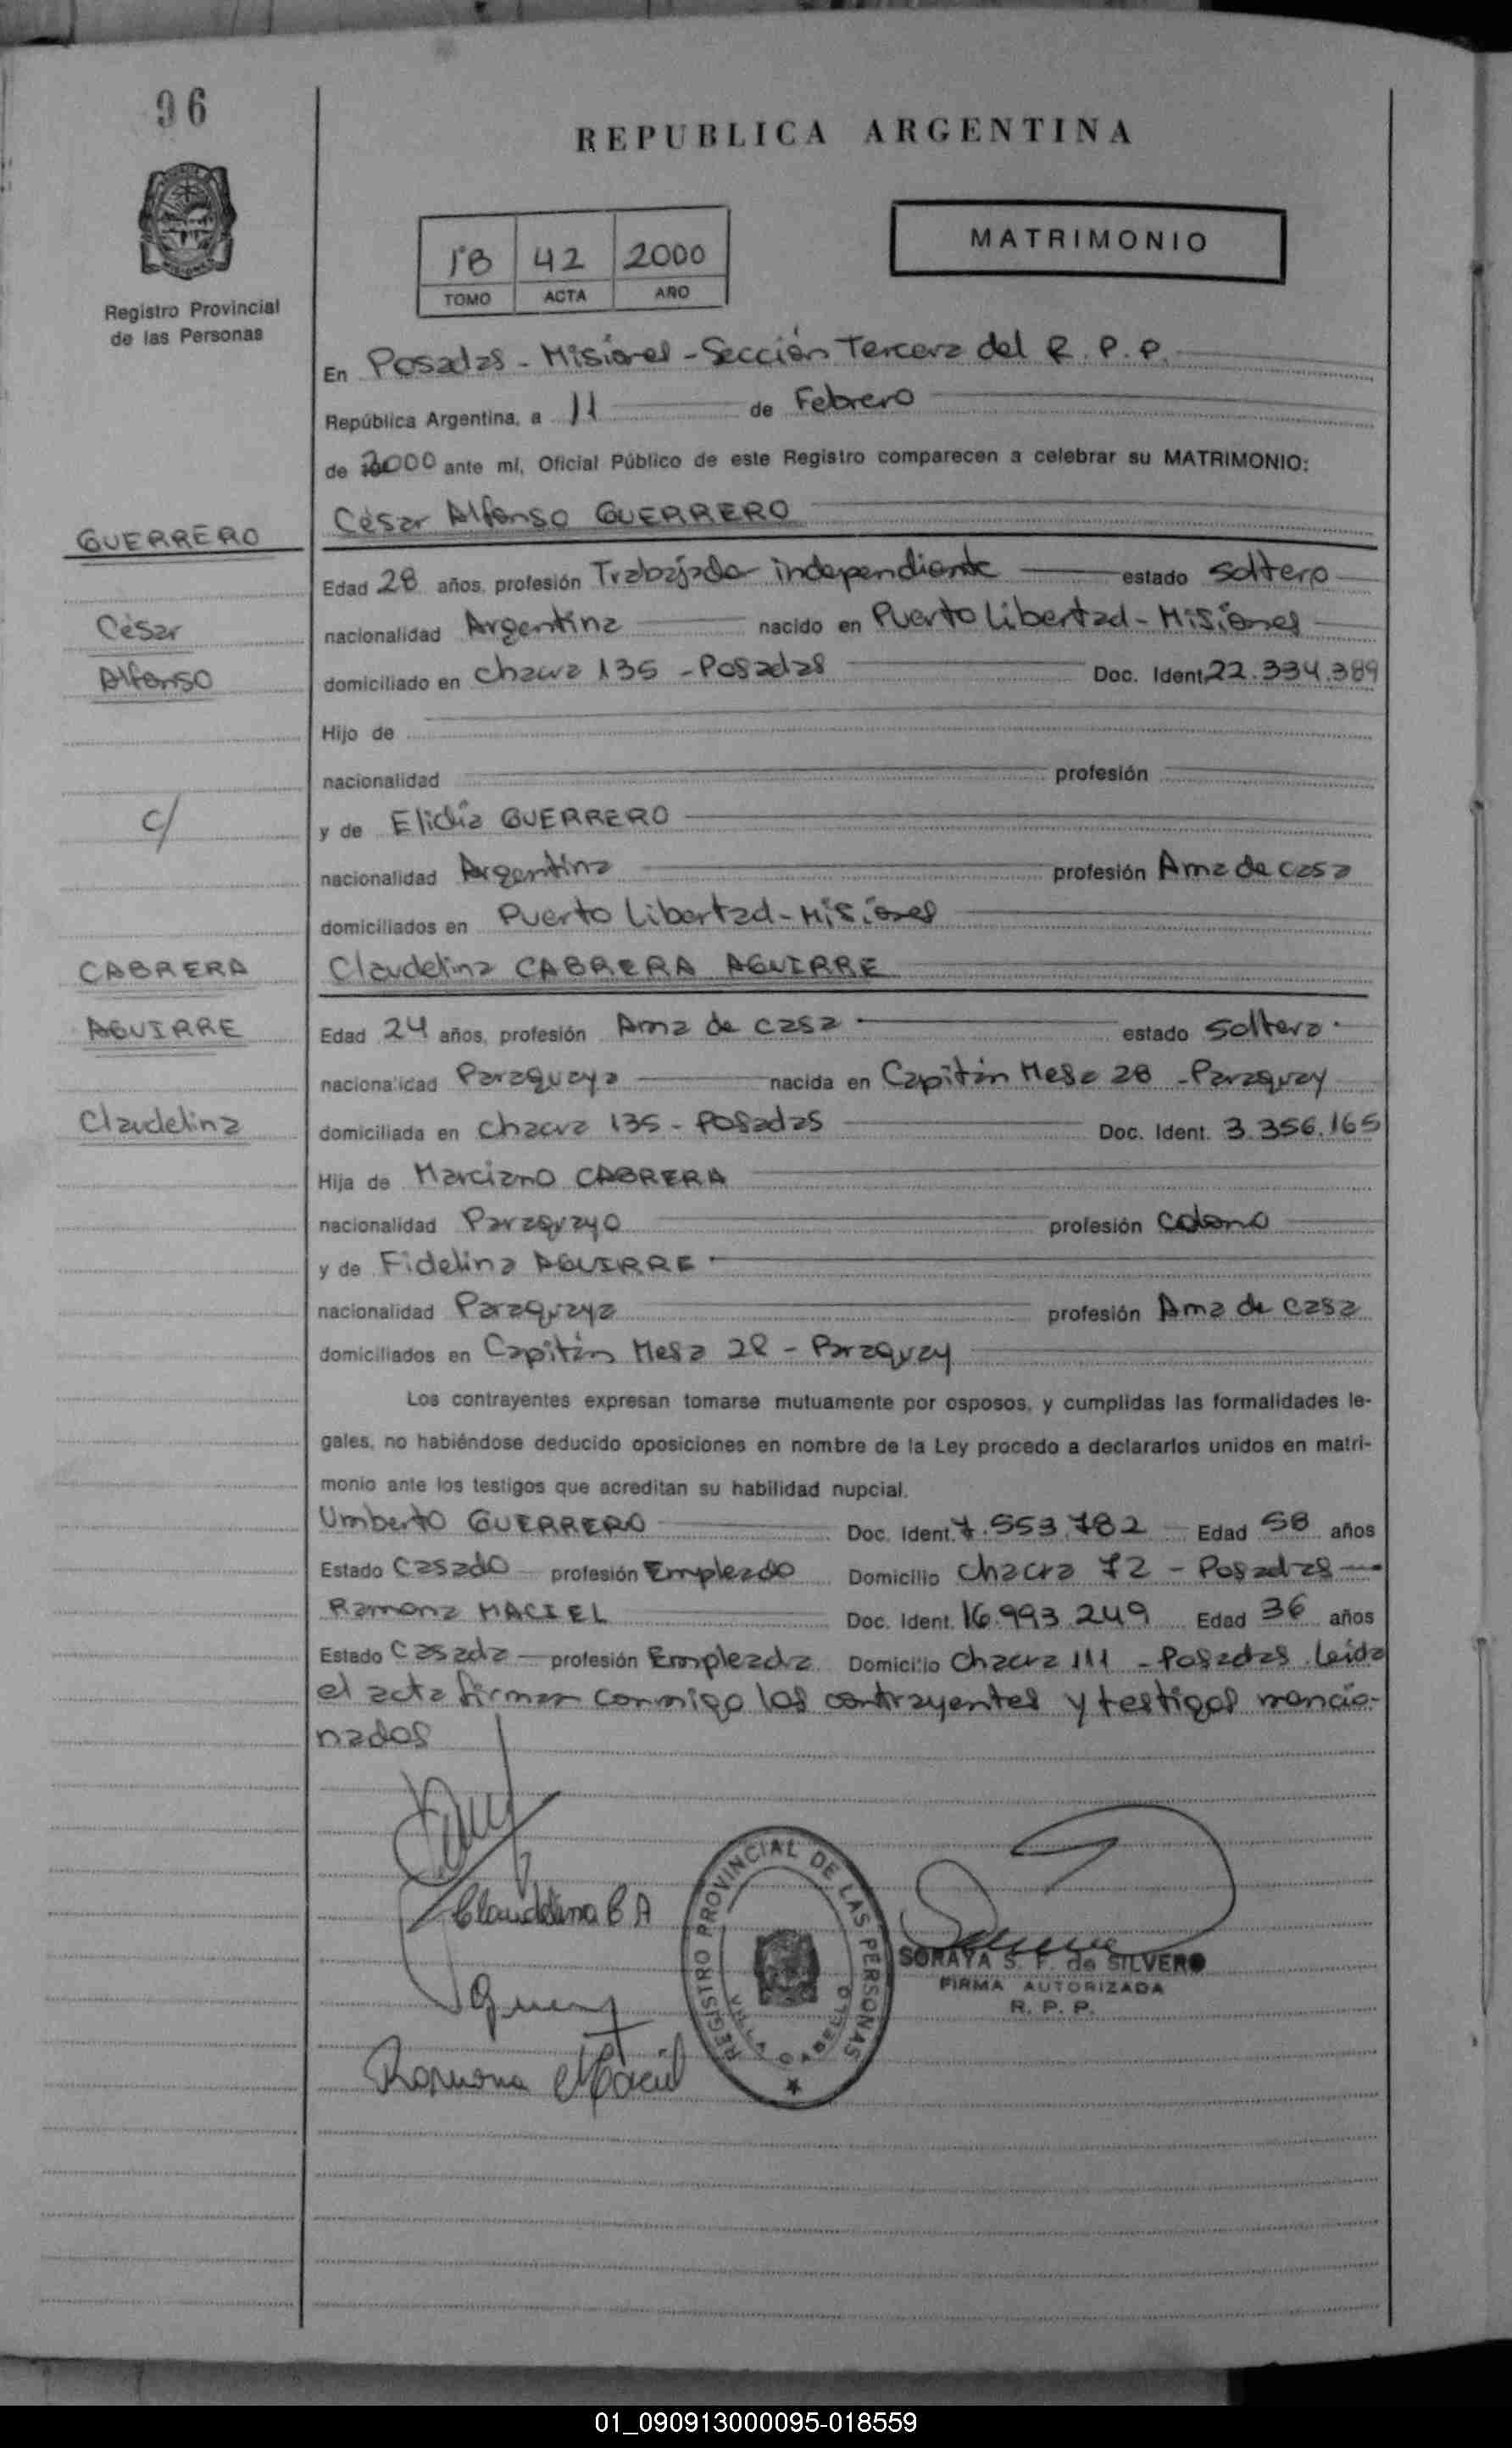 96
REPUBLICA ARGENTINA
Registro Provincial
de las Personas
1°B 42 2000
TOMO ACTA AÑO
MATRIMONIO
En Posadas - Misiones - Sección Tercera del R. P. P.
República Argentina, a 11 de Febrero
de 2000 ante mí, Oficial Público de este Registro comparecen a celebrar su MATRIMONIO:
GUERRERO
César Alfonso GUERRERO
Edad 28 años, profesión Trabajador independiente estado soltero
César
nacionalidad Argentina nacido en Puerto Libertad - Misiones
Alfonso
domiciliado en chacra 135 - Posadas Doc. Ident. 22.334.389
Hijo de
nacionalidad profesión
c/
y de Elidia GUERRERO
nacionalidad Argentina profesión Ama de casa
domiciliados en Puerto Libertad - Misiones
CABRERA
Claudelina CABRERA AGUIRRE
AGUIRRE
Edad 24 años, profesión Ama de casa estado soltera
nacionalidad Paraguaya nacida en Capitán Mesa 28 - Paraguay
Claudelina
domiciliada en chacra 135 - Posadas Doc. Ident. 3.356.165
Hija de Marciano CABRERA
nacionalidad Paraguayo profesión colono
y de Fidelina AGUIRRE
nacionalidad Paraguaya profesión Ama de casa
domiciliados en Capitán Mesa 28 - Paraguay
Los contrayentes expresan tomarse mutuamente por osposos, y cumplidas las formalidades le-
gales, no habiéndose deducido oposiciones en nombre de la Ley procedo a declararlos unidos en matri-
monio ante los testigos que acreditan su habilidad nupcial.
Umberto GUERRERO Doc. Ident. 7.553.782 Edad 58 años
Estado Casado profesión Empleado Domicilio chacra 72 - Posadas
Ramona MACIEL Doc. Ident. 16.993.249 Edad 36 años
Estado Casada profesión Empleada Domicilio chacra 111 - Posadas. Leída
el acta firman conmigo los contrayentes y testigos mencio-
nados
Claudelina C A
REGISTRO PROVINCIAL DE LAS PERSONAS
VILLA CABELLO
SORAYA S. F. de SILVERO
FIRMA AUTORIZADA
R. P. P.
Ramona Maciel
01_090913000095-018559